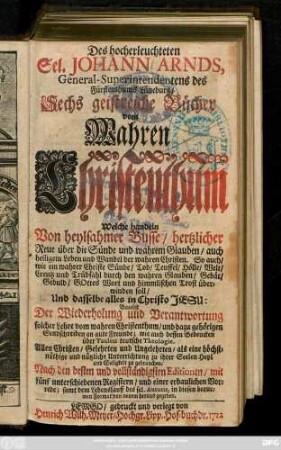 Des hocherleuchteten
Sel. JOHANN ARNDS,
General-Superintendentens des
Fürstenthums Lüneburg/
Sechs geistreiche Bücher
vom
Wahren
Christenthum
Welche handeln
Von heylsahmer Busse/ hertzlicher
Reue über die Sünde und wahrem Glauben/ auch
heiligem Leben und Wandel der wahren Christen. So auch/
wie ein wahrer Christe Sünde/ Tod/ Teuffel/ Hölle/ Welt/
Creutz und Trübsahl durch den wahren Glauben/ Gebät/
Gedult/ GOttes Wort und himmlischen Trost über-
winden soll/
Und dasselbe alles in Christo JESU:
Der Wiederholung und Verantwortung
solcher Lehre vom wahren Christenthum/ und dazu gehörigen
Sendschreiben an gute Freunde; wie auch dessen Bedencken
über Taulers teutsche Theologie.
Allen Christen/ Gelehrten und Ungelehrten/ als eine höchst-
nöthige und nützliche Unterrichtung zu ihrer Seelen Heyl
und Seligkeit zu gebrauchen/
Nach den besten und vollständigsten Editionen/ mit
fünf unterschiedenen Registern/ und einer erbaulichen Vor-
rede; samt dem Lebenslauff des sel. Autoris, in diesem beque-
men Format von neuem heraus gegeben.
LEMGO/ gedruckt und verlegt von
Henrich Wilh. Meyer/ Hochgr. Lipp. Hof-buchdr. 1712